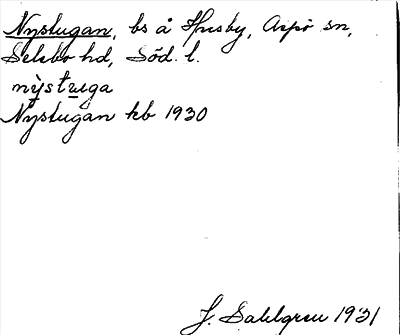 Nystugan, bs å Husby, Aspö sn,
Selebo hd, Söd. l.
nỳstu̲ga
Nystugan kb 1930
J. Sahlgren 1931